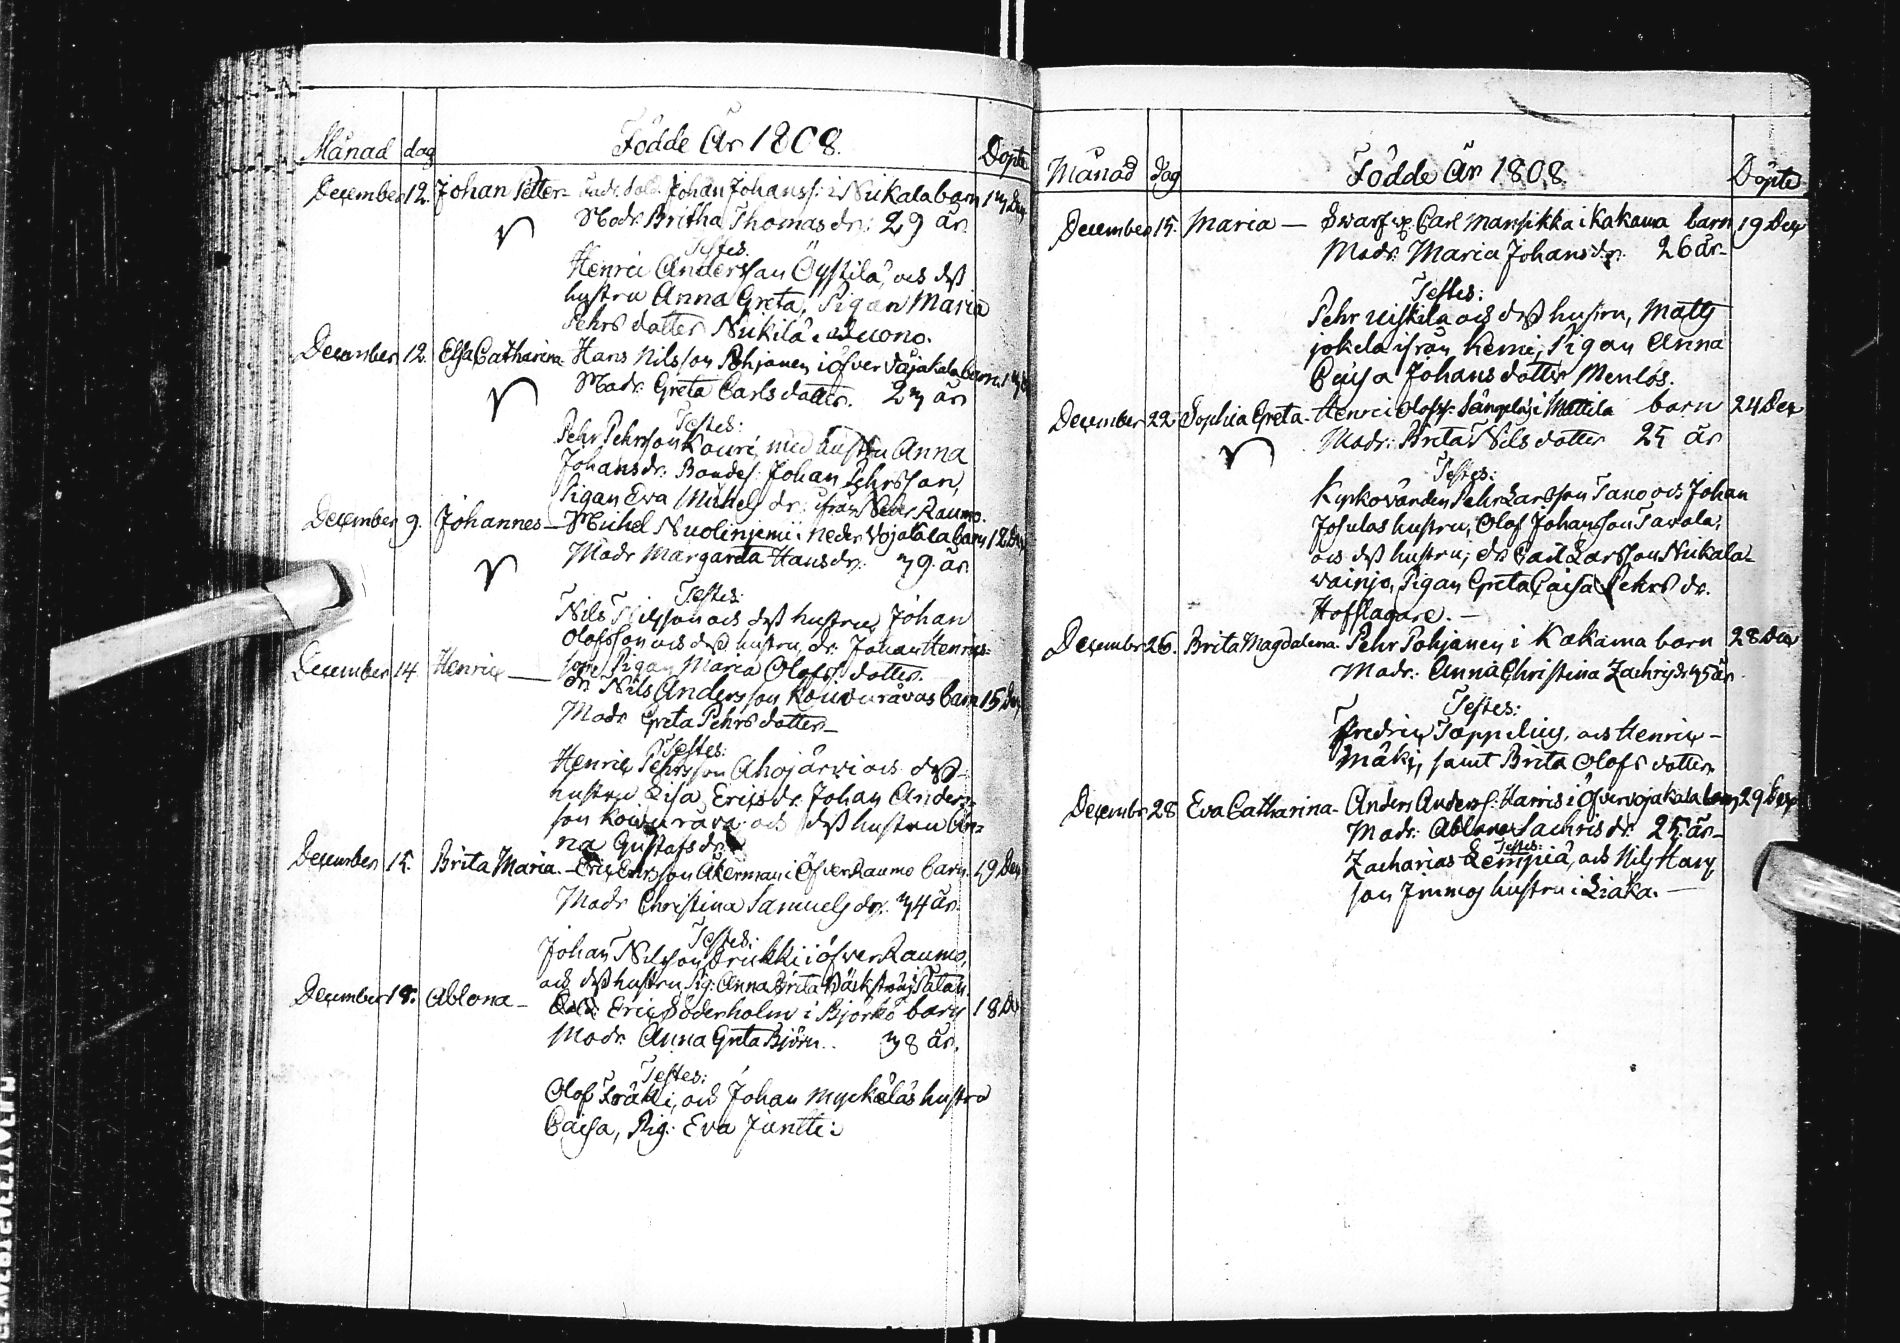 Födde År 1808.
Månad dag Döpte
December 12. Johan Petter – Johan Johanss: i Nukala barn 13 Dec
Modr. Britha Thomas dr: 29 år
Testes.
Henric Andersson Öystilä, och dess
hustru Anna Greta, Pigan Maria
Pehrs dotter Nukila
December 12. Elsa Catharina – Hans Nilsson Pohjanen i öfver Vojakala barn 13
Modr. Greta Carls dotter. 23 år
Testes:
Pehr Pehrsson Kouri, med hustru Anna
Johansdr. Bondes. Johan Pehrsson,
Pigan Eva Michels dr: ifrån Neder Raumo.
December 9. Johannes – Michel Nuolinjemi i neder Vojakala barn 12 Dec
Modr Margareta Hansdr: 39. år
Testes:
Nils Nilsson och dess hustru Johan
Olofsson och dess hustru, dr. Johan Henrics-
son, Pigan Maria Olofs dotter.
December 14 Henric – dr. Nils Andersson Kouvurävas barn 15 Dec
Modr Greta Pehrs dotter –
Testes:
Henric Pehrsson Ahojärwi och dess
hustru Lisa Ericsdr. Johan Anders-
son och dess hustru An-
na Gustafs dr.
December 15. Brita Maria. – Eric Ersson Åkerman i Öfver Raumo barn. 19 Dec
Modr Christina Samuels dr: 34 år.
Testes:
Johan Nilsson i öfver Raumo,
och dess hustru Pig. Anna Brita Bäckström
December 18. Ablona – Eric Söderholm i Björkö barn 18 De
Modr. Anna Greta Björn.. 38 år.
Testes:
Olof Fräki, och Johan Myckälas hustru
Caisa, Pig: Eva Juntti:
Födde År 1808
Månad dag Döpte
December 15. Maria – Carl Mansikka i Kakama barn 19 Dec
Modr. Maria Johansdr. 26 år –
Testes:
Pehr Uiskila och dess hustru, Matts
jokela ifrån Kemi, Pigan Anna
Caisa Johans dotter Menlös.
December 22. Sophia Greta – Henric Olofss: i Mattila barn 24 Dec
Modr: Brita Nils dotter 25 år
Testes:
Kyrkovärden Pehr Larsson Tano och Johan
Josulas hustru, Olof Johansson Tawala,
och dess hustru; dr Carl Larsson Nukala-
wainjo, Pigan Greta Caisa Pehrs dr.
Hofslagare. –
December 26. Brita Magdalena. Pehr Pohjanen i Kakama barn 28 Dec
Modr: Anna Christina Zachrisdr 35 år
Testes:
Fredric Toppelius, och Henric –
Mäki, samt Brita Olofs dotter
December 28 Eva Catharina – Anders Anderss: Harris i Öfvervojakala barn 29 Dec
Modr: Ablona Sachris dr. 25. år –
Testes:
Zacharias Lempiä, och Nils Hans
son Immos hustru i Liaka. –